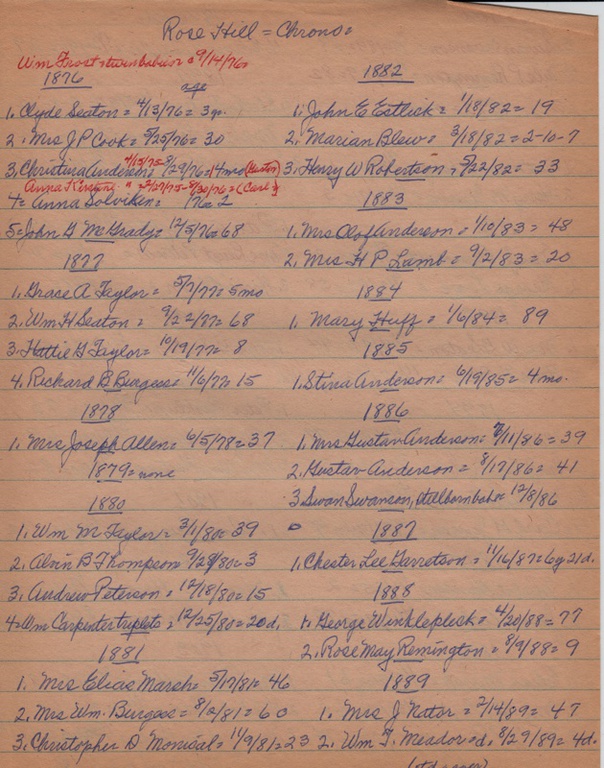 Rose Hill = Chrono=
Wm Frost = twin babies = 9/14/76=
1876
age
1. Clyde Seaton = 4/13/76 = 3 yr.
2. Mrs J P Cook = 5/25/76 = 30
3. Christina Anderson = 4/15/75 - 8/29/76 = 14 mo
4 = Anna Solviken = /76 = 2
5 = John G McGrady = 12/5/76 = 68
1877
1. Grace A Taylor = 5/7/77 = 5 mo
2. Wm. H Seaton = 9/22/77 = 68
3. Hattie G Taylor = 10/19/77 = 8
4. Richard B Burgess = 11/6/77 = 15
1878
1. Mrs Joseph Allen = 6/5/78 = 37
1879 = none
1880
1. Wm M Taylor = 3/1/80 = 39
2. Alvin B Thompson = 9/29/80 = 3
3. Andrew Peterson = 12/18/80 = 15
4 = Wm Carpenter triplets = 12/25/80 = 20 d.
1881
1. Mrs Elias Marsh = 5/17/81 = 46
2. Mrs Wm. Burgess = 8/12/81 = 60
3. Christopher D Monical = 11/9/81 = 23
1882
1. John E Estlick = 1/18/82 = 19
2. Marian Blew = 3/18/82 = 2-10-7
3. Henry W Robertson = 5/22/82 = 33
1883
1. Mrs Olof Anderson = 1/10/83 = 48
2. Mrs H P Lamb = 9/2/83 = 20
1884
1. Mary Huff = 1/6/84 = 89
1885
1. Stina Anderson = 6/19/85 = 4 mo.
1886
1. Mrs Gustav Anderson = /11/86 = 39
2. Gustav Anderson = 8/17/86 = 41
3. Swan Swanson, stillborn = 12/8/86
1887
1. Chester Lee Garretson = 11/16/87 = 6 y 21 d.
1888
1. George Winklepleck = 4/20/88 = 77
2. Rose May Remington = 8/9/88 = 9
1889
1. Mrs J Nator = 2/14/89 = 47
2. Wm T. Meador = d. 8/29/89 = 4 d.